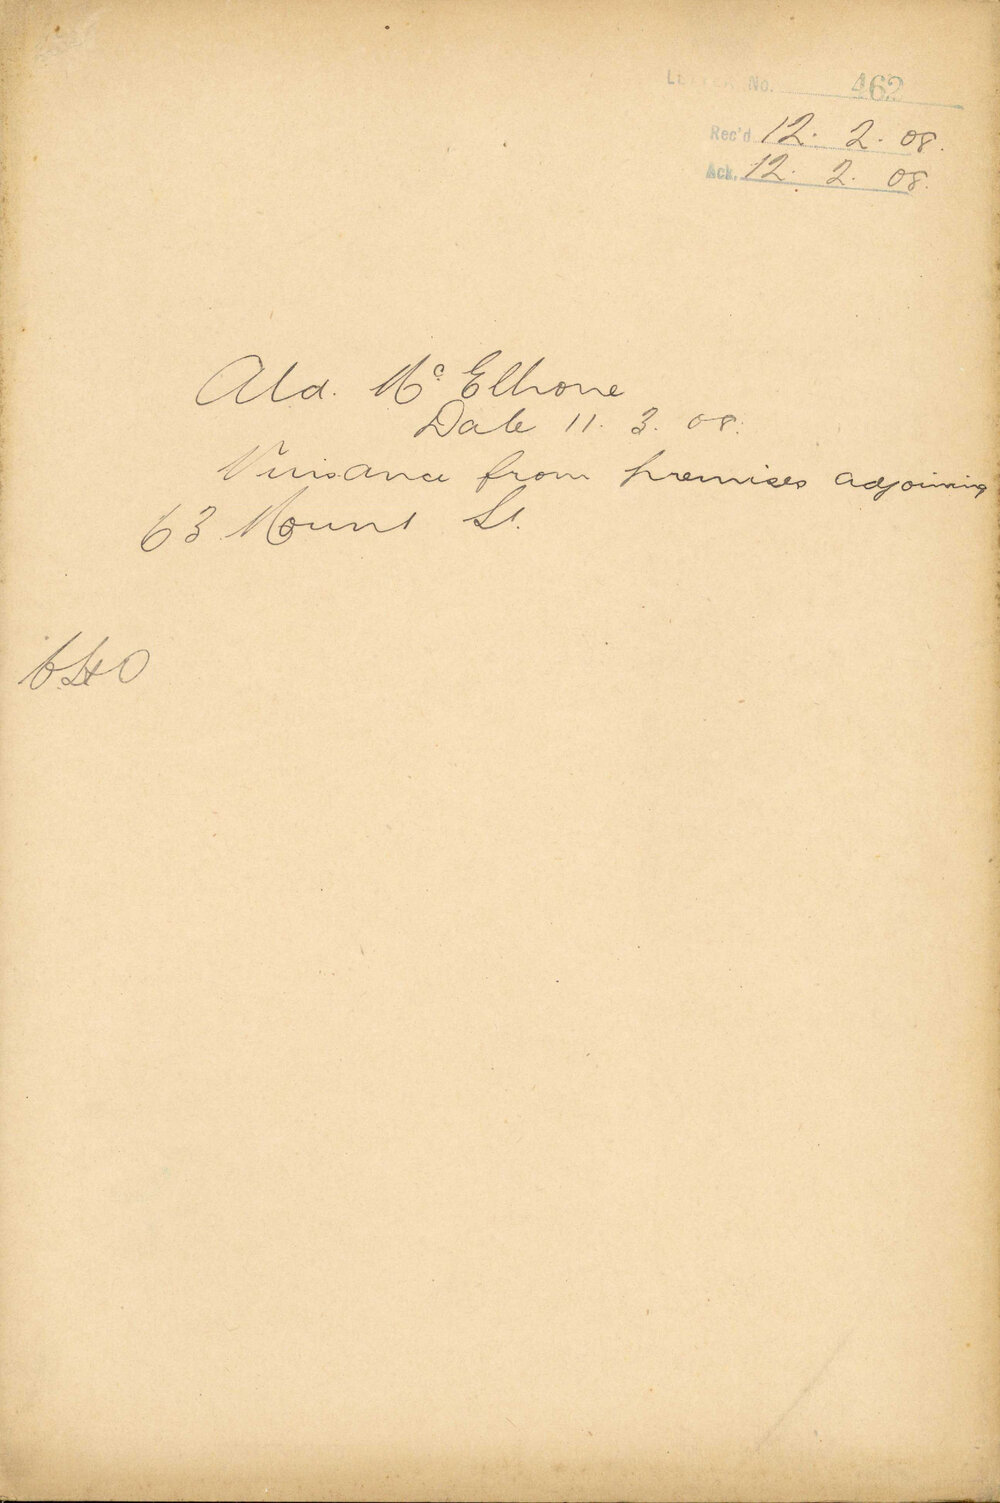 LETTER No. 462
Rec'd 12. 2. 08.
Ack. 12. 2. 08.
Ald. Mc Elhone
Date 11. 3. 08.
Nuisance from premises adjoining
63 Mount St.